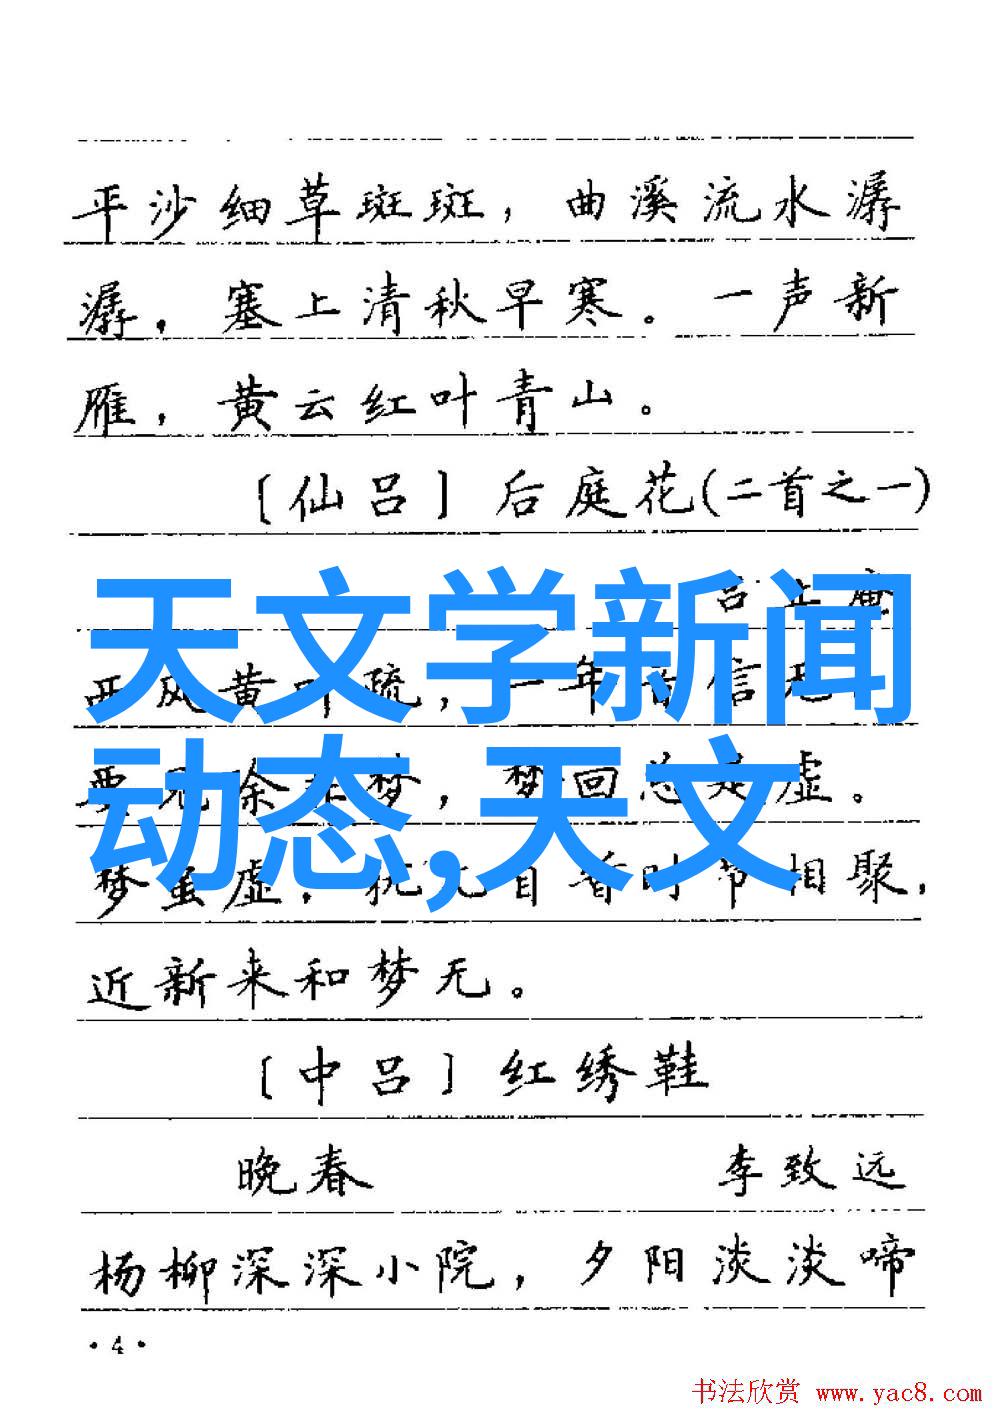 平沙细草斑斑，曲溪流水潺
潺，塞上清秋早寒。一声新
雁，黄云红叶青山。
〔仙吕〕后庭花(二首之一)
吕止庵
天文学新闻
西风黄叶疏，一年音信无。
动态,天文
要见除非梦，梦回总是虚。
梦虽虚，犹 自 时节相聚，
近新来和梦无。
〔中吕〕红绣鞋
晚春 李致远
杨柳深深小院，夕阳淡淡啼
·4·
书法欣赏 www.yac8.com